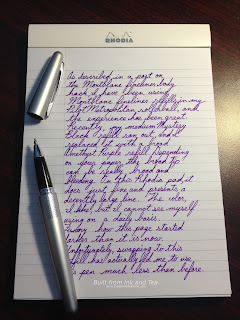 RHODIA
As described in a post on
the Montblanc fineliner body
hack, I have been using
Montblanc fineliner refills in my
Pilot Metropolitan rollerball, and
the experience has been great.
Recently, my medium Mystery
Black refill ran out, and I
replaced it with a broad
Amethyst Purple refill. Depending
on your paper, the broad tip
can be really broad and
bleeding. On this Rhodia pad, it
does just fine and presents a
decently large line. The color,
I like, but I cannot see myself
using on a daily basis.
Today, how the page started
darker than it is now.
Unfortunately, swapping to this
refill has actually led me to use
this pen much less than before.
Built from Ink and Tea